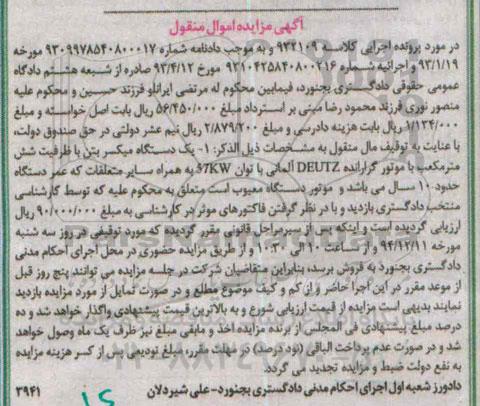 آگهی مزایده اموال منقول
در مورد پرونده اجرایی کلاسه ۹۳۲۱۰۹ و به موجب دادنامه شماره ۹۳۰۹۹۷۸۵۴۰۸۰۰۰۱۷ مورخه
۹۳/۱/۱۹ و اجرائیه شماره ۹۳۱۰۴۲۵۸۴۰۸۰۰۲۱۶ مورخ ۹۳/۴/۱۲ صادره از شبیعه هشتم دادگاه
عمومی حقوقی دادگستری بجنورد، فیمابین محکوم له مرتضی ایرانلو فرزند حسین و محکوم علیه
منصور نوری فرزند محمود رضا مبنی بر استرداد مبلغ ۵۶/۴۵۰/۰۰۰ ریال بابت اصل خواسته و مبلغ
۱/۱۳۴/۰۰۰ ریال بابت هزینه دادرسی و مبلغ ۲/۸۷۹/۲۰۰ ریال نیم عشر دولتی در حق صندوق دولت،
با عنایت به توقیف مال منقول به مشخصات ذیل الذکر: ۱- یک دستگاه میکسر بتن با ظرفیت شش
مترمکعب با موتور گرارانده DEUTZ آلمانی با توان 57KW به همراه سایر متعلقات که عمر دستگاه
حدود ۱۰ سال می باشد و موتور دستگاه معیوب است متعلق به محکوم علیه که توسط کارشناسی
منتخب دادگستری بازدید و با در نظر گرفتن فاکتورهای موثر در کارشناسی به مبلغ ۹۰/۰۰۰/۰۰۰ ریال
ارزیابی گردیده است و اینکه پس از سیر مراحل قانونی مقرر گردیده که مورد توقیفی در روز سه شنبه
مورخه ۹۴/۱۲/۱۱ و از ساعت ۱۰ الی ۱۰:۳۰ و از طریق مزایده حضوری در محل اجرای احکام مدنی
دادگستری بجنورد به فروش برسد، بنابراین متقاضیان شرکت در جلسه مزایده می توانند پنج روز قبل
از موعد مقرر در این اجرا حاضر و از کم و کیف موضوع مطلع و در صورت تمایل از مورد مزایده بازدید
نمایند بدیهی است مزایده از قیمت ارزیابی شروع و به بالاترین قیمت پیشنهادی واگذار خواهد شد و ده
درصد مبلغ پیشنهادی فی المجلس از برنده مزایده اخذ و مابقی مبلغ نیز ظرف یک ماه وصول خواهد
شد و در صورت عدم پرداخت الباقی (نود درصد) در مهلت مقرر، مبلغ تودیعی پس از کسر هزینه مزایده
به نفع دولت ضبط و مزایده تجدید می گردد.
دادورز شعبه اول اجرای احکام مدنی دادگستری بجنورد-علی شیردلان ۳۹۴۱